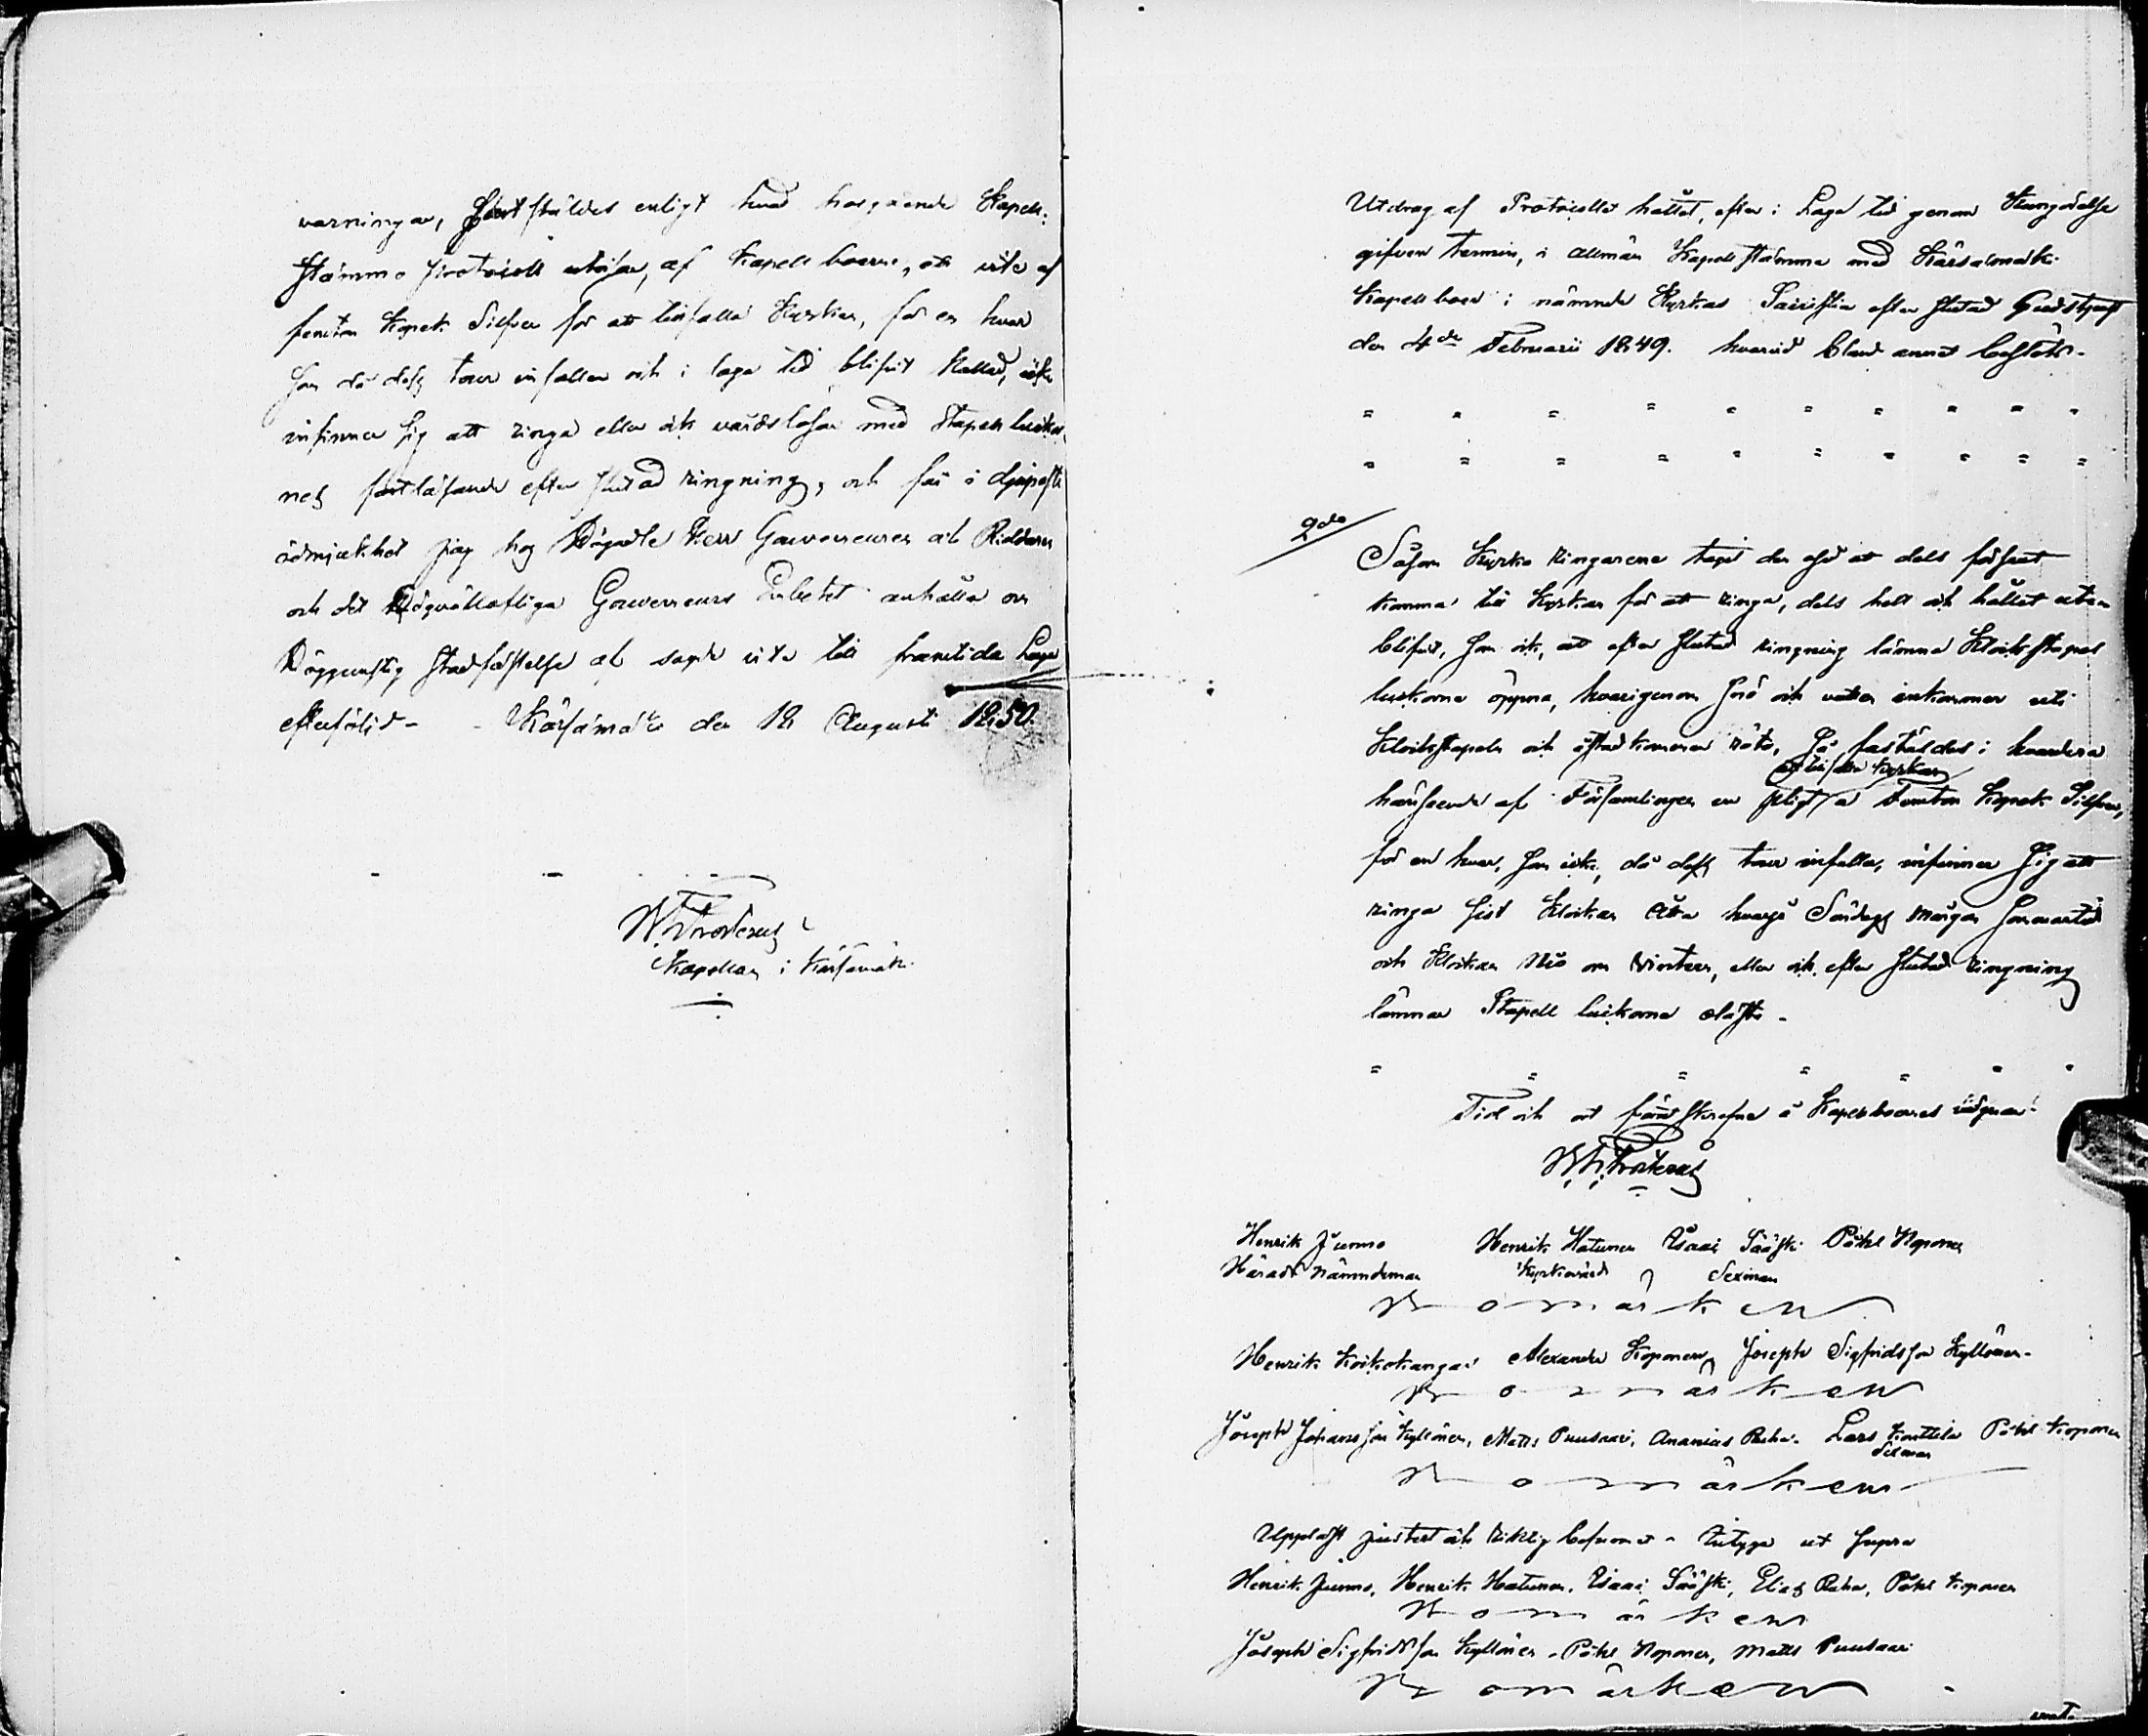 varningar, fastställdes enligt hvad hosgående Kapell-
stämmo Protocoll utvisar, af Kapellboerne, ett vite af
femton Kopek Silfver för att tillfalla Kyrkan, för en hvar
som då dess tour infaller och i laga tid blifvit kallad, icke
infinner sig att ringa eller ock vårdslösar med Stapell luckor-
nes fastläsande efter slutad ringning, och får i djupaste
ödmjukhet jag hos Högädle Herr Gouverneuren och Riddaren
och det Högvällofliga Gouverneurs Embetet anhålla om
Höggunstig stadfästelse å sagde vite till framtida laga
efterföljd - Kärsämäki den 12 Augusti 1850.
W. Frosterus
Kapellan i Kärsämäki
Utdrag af Protocollet hållet, efter i Laga tid genom Kungörelse
gifven termin, i allmän Kapellstämma med Kärsämäki
Kapellboer i nämnde Kyrkas Sacristia efter slutad Gudstjenst
den 4de Februarii 1849. hvarvid bland annat beslöts.
2do
Såsom Kyrko ringarene tagit den osed att dels för sent
komma till Kyrkan för att ringa, dels helt och hållet uteblifvit, som ock, att efter slutad ringning lämna Klockstapel
luckorna öppna, hvarigenom snö och vatten inkommer uti
Klockstapeln och åstadkommer röta, så fastäldes i hvardera
att tillfalla Kyrkan
hänseende af Församlingen en pligt a femton Kopek Silfver,
för en hvar, som icke, då dess tour infaller, infinner sig att
ringa sist Klockan Åtta hvarje Söndags morgon Sommartid
och Klockan Nio om Vintern, eller ock efter slutad ringning
lämnar Stapell luckorna olåsta -
Tid och ort förutskrefne å Kapellboernes vägnar
W. Frosterus
Henrik Junno Henrik Hatunen Esaai Sääski Påhl Koponen
Härads Nämndeman Kyrkovärd Sexman
Bomärken
Henrik Koikokangas Alexander Koponen Joseph Sigfridsson Kyllönen
Bomärken
Joseph Johansson Kyllönen, Matts Puusaari, Ananias Ruha. Lars Konttila Påhl Koponen
Sexman
Bomärken
Uppläst justerat och riktig befunnet. betyga ut supra
Henrik Junno, Henrik Hatunen, Esaai Sääski, Elias Ruha, Påhl Koponen
Bomärken
Joseph Sigfridsson Kyllönen, Påhl Koponen, Matts Puusaari
Bomärken